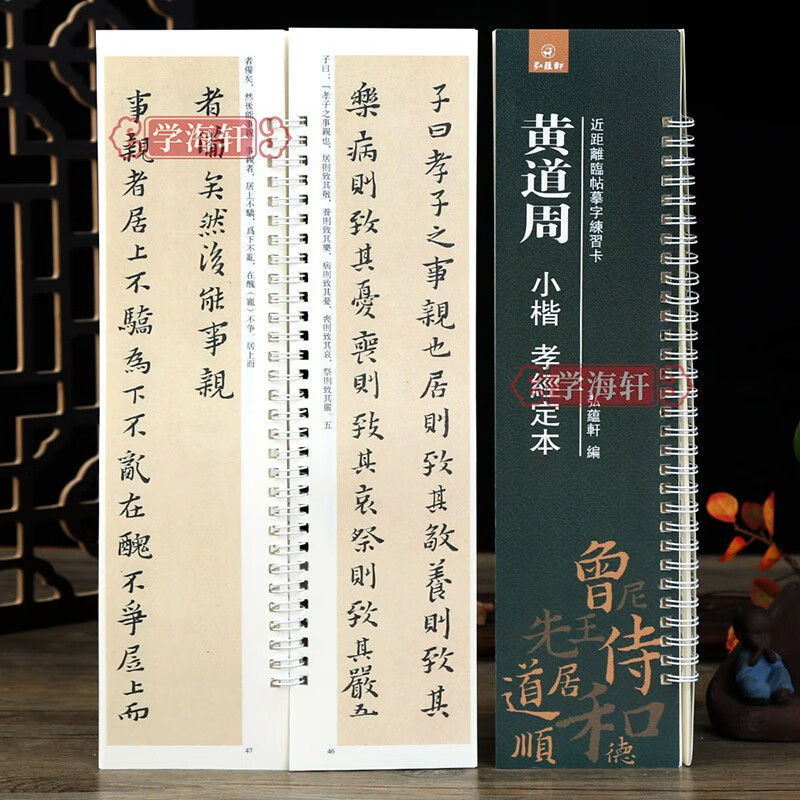 弘蘊軒
近距離臨帖摹字練習卡
黄道周
小楷 孝經定本
弘蘊軒 編
魯
尼
王
先
侍
居
道
和
順
德
子曰孝子之事親也居則致其敬養則致其
樂病則致其憂喪則致其哀祭則致其嚴五
子曰：「孝子之事親也，居則致其敬，養則致其樂，病則致其憂，喪則致其哀，祭則致其嚴。五
46
者備矣，然後能事親。事親者，居上不驕，爲下不亂，在醜（寵）不争。居上而
者備矣然後能事親
事親者居上不驕為下不亂在醜不爭居上而
47
学海轩
学海轩